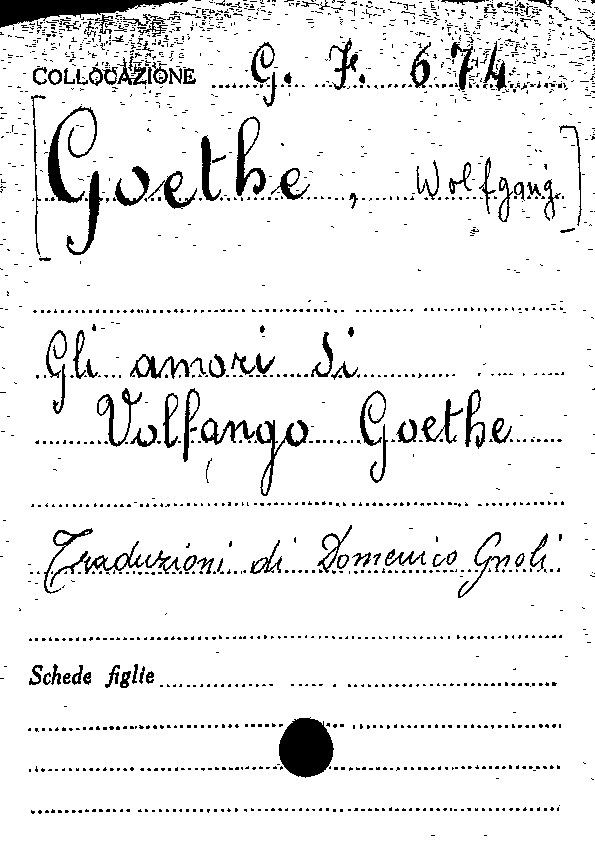 COLLOCAZIONE G. F. 674
[Goethe, Wolfgang]
Gli amori di
Volfango Goethe
Traduzioni di Domenico Gnoli
Schede figlie